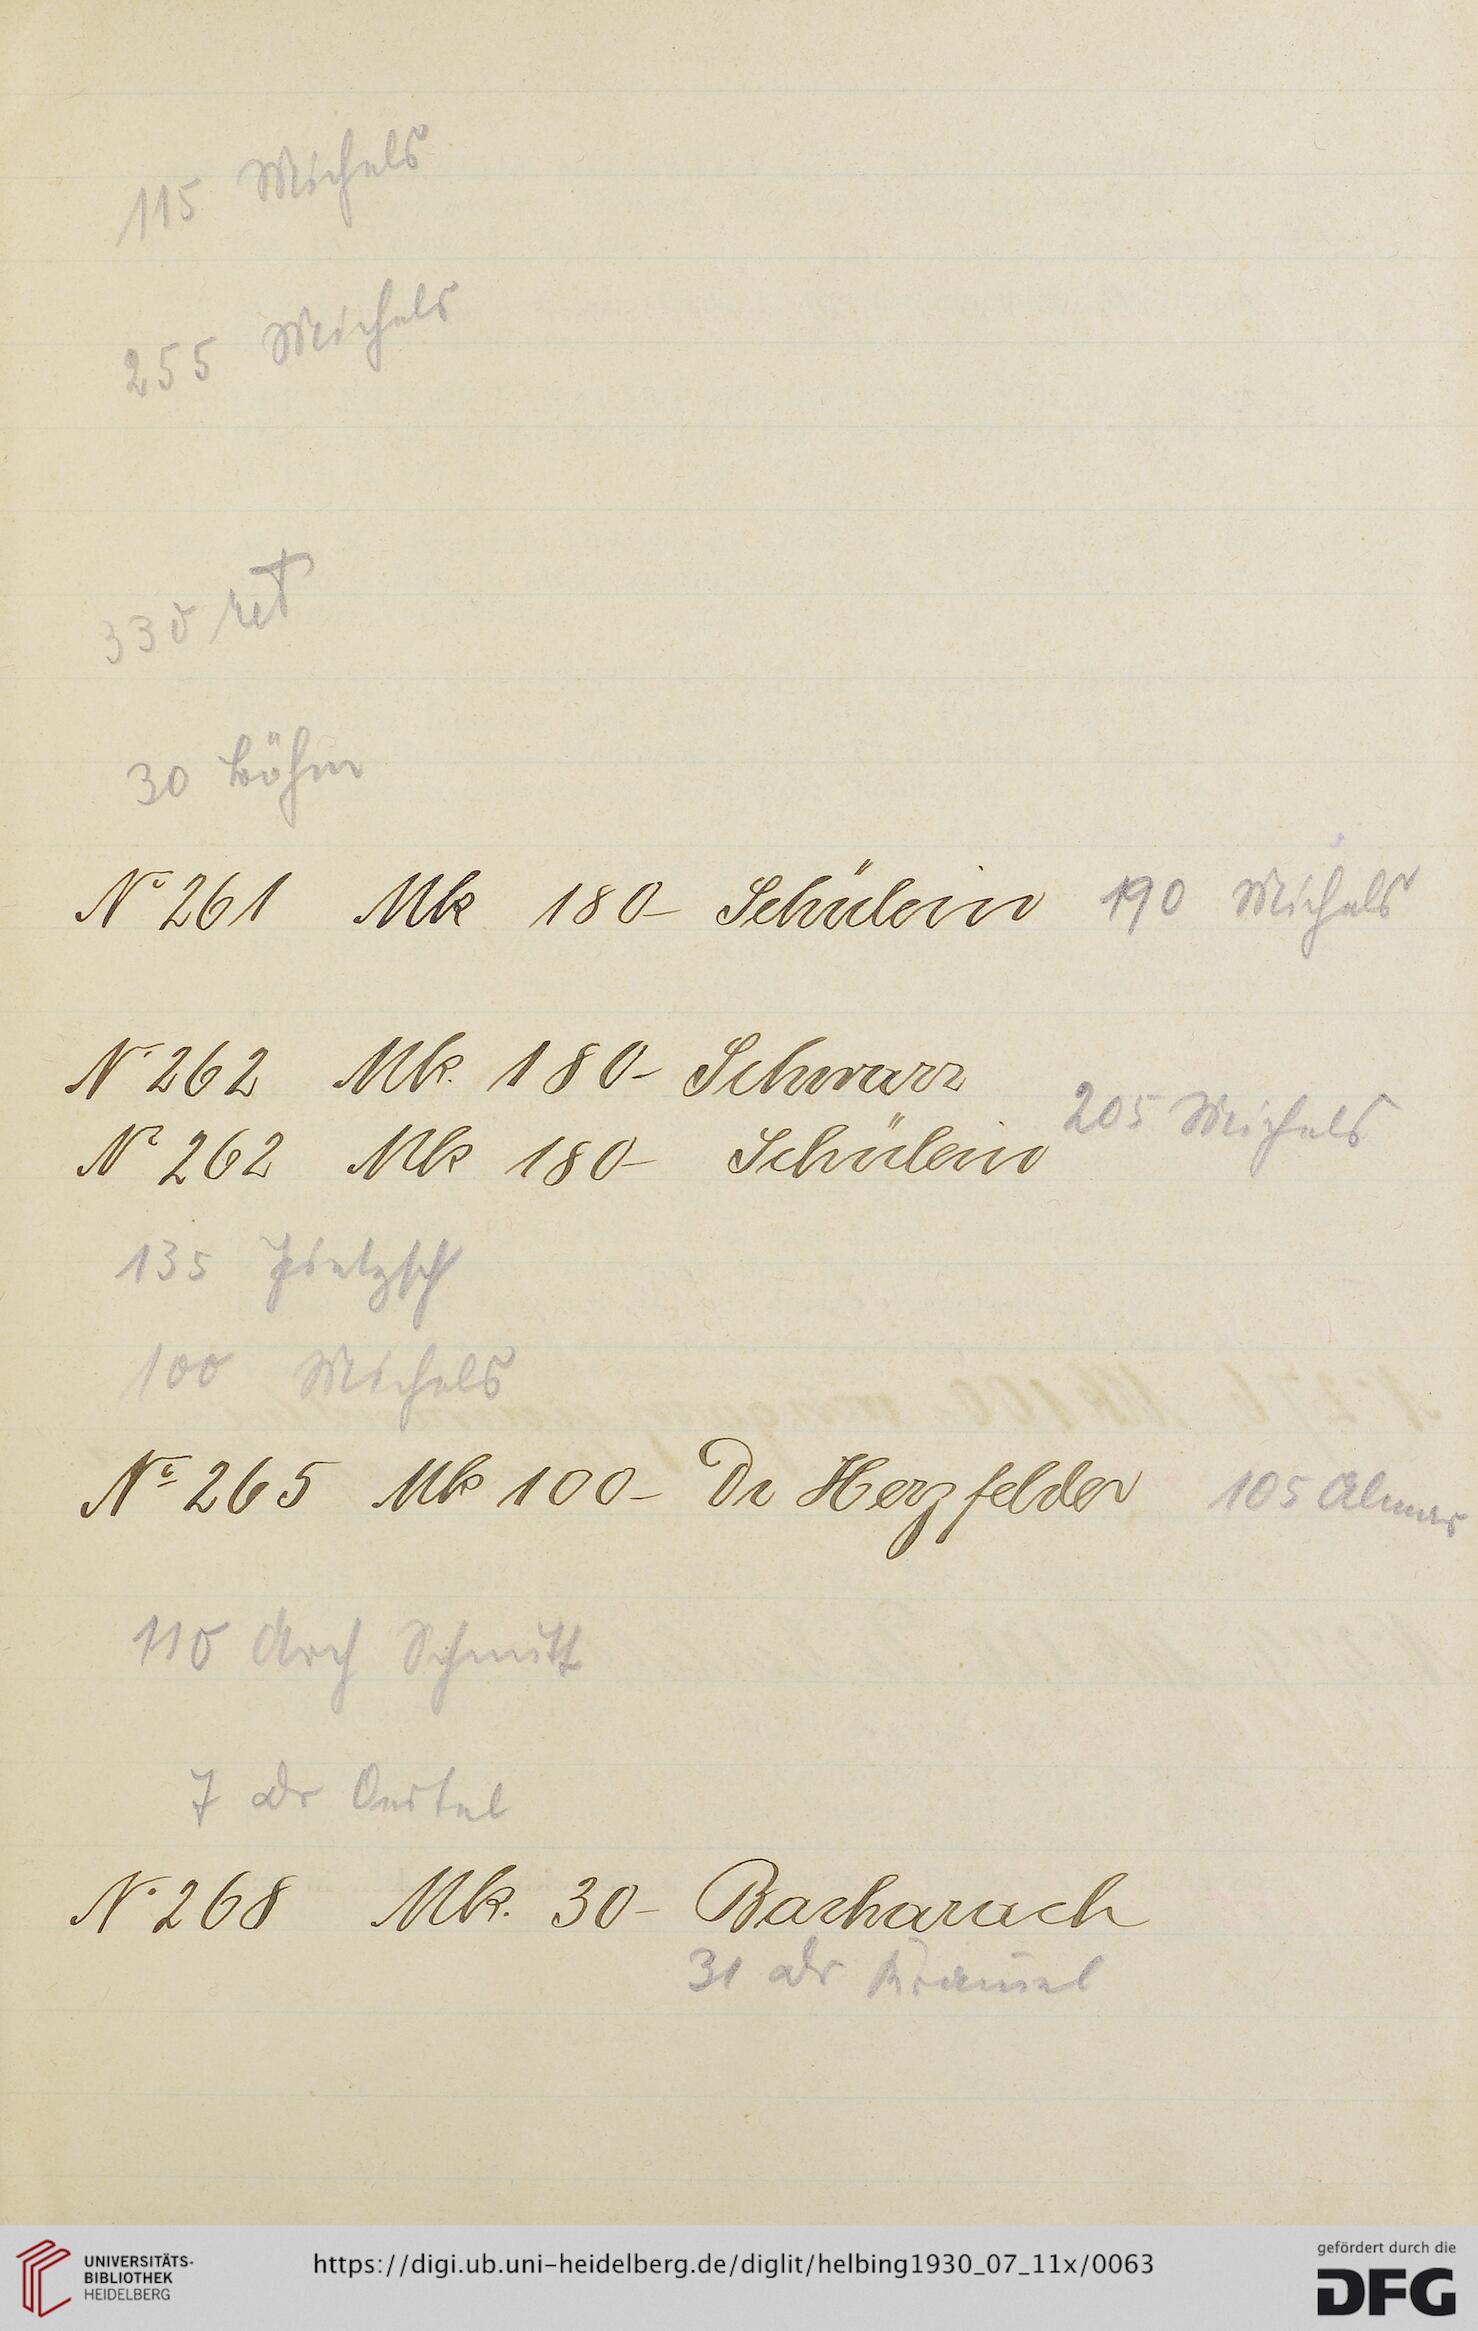 115 Michels
255 Michels
330 ret
30 Böhm
No 261 Mk 180- Schülein 190 Michels
N. 262 Mk. 180- Schwarz
205 Michels
No 262 Mk 180- Schülein
135 Pietzsch
100 Michels
No 265 Mk 100- Dr Herzfelder 105 Almas
110 Arch Schmitt
7 Dr Oertel
N. 268 Mk. 30- Bacharach
31 Dr
UNIVERSITÄTS-
BIBLIOTHEK
HEIDELBERG
https://digi.ub.uni-heidelberg.de/diglit/helbing1930_07_11x/0063
gefördert durch die
DFG